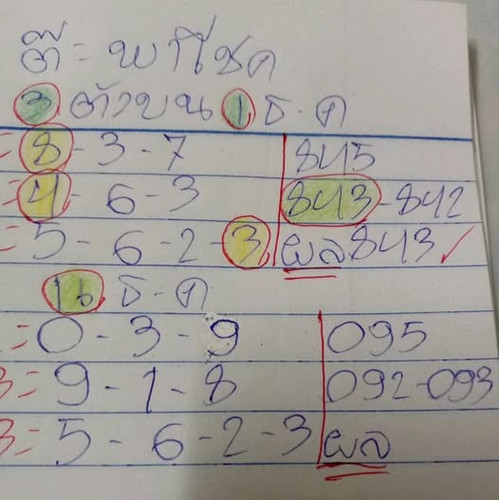 ต๊ = พาโชค
3 ตัวบน 1 ธ.ค
= 8 - 3 - 7 845
= 4 - 6 - 3 843 - 842
= 5 - 6 - 2 - 3 ผล 843 ✓
16 ธ.ค
= 0 - 3 - 9 095
3 = 9 - 1 - 8 092-093
3 = 5 - 6 - 2 - 3 ผล